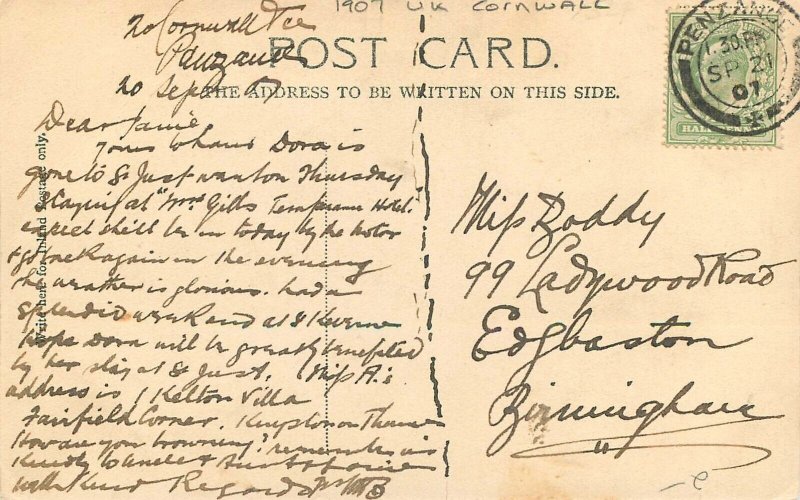 1907 UK CORNWALL
20 Cornwall Tce
Penzance
20 Sep 07
POST CARD.
THE ADDRESS TO BE WRITTEN ON THIS SIDE.
Write here for Inland Postage only.
PENZANCE
1.30 PM
SP 21
07
HALFPENNY
Dear Janie
Yours to hand Dora is
gone to St Just went on Thursday
staying at "Mrs Gills Temperance Hotel"
expect she'll be in today by the motor
& go back again in the evening
the weather is glorious. had a
splendid weekend at St Keverne
hope Dora will be greatly benefited
by her stay at St Just. Miss A's
address is 1 Kelton Villa
Fairfield Corner. Kingston on Thames
How are you browning? remember us
kindly to Uncle &
with Kind Regards
Miss Boddy
99 Ladywood Road
Edgbaston
Birmingham